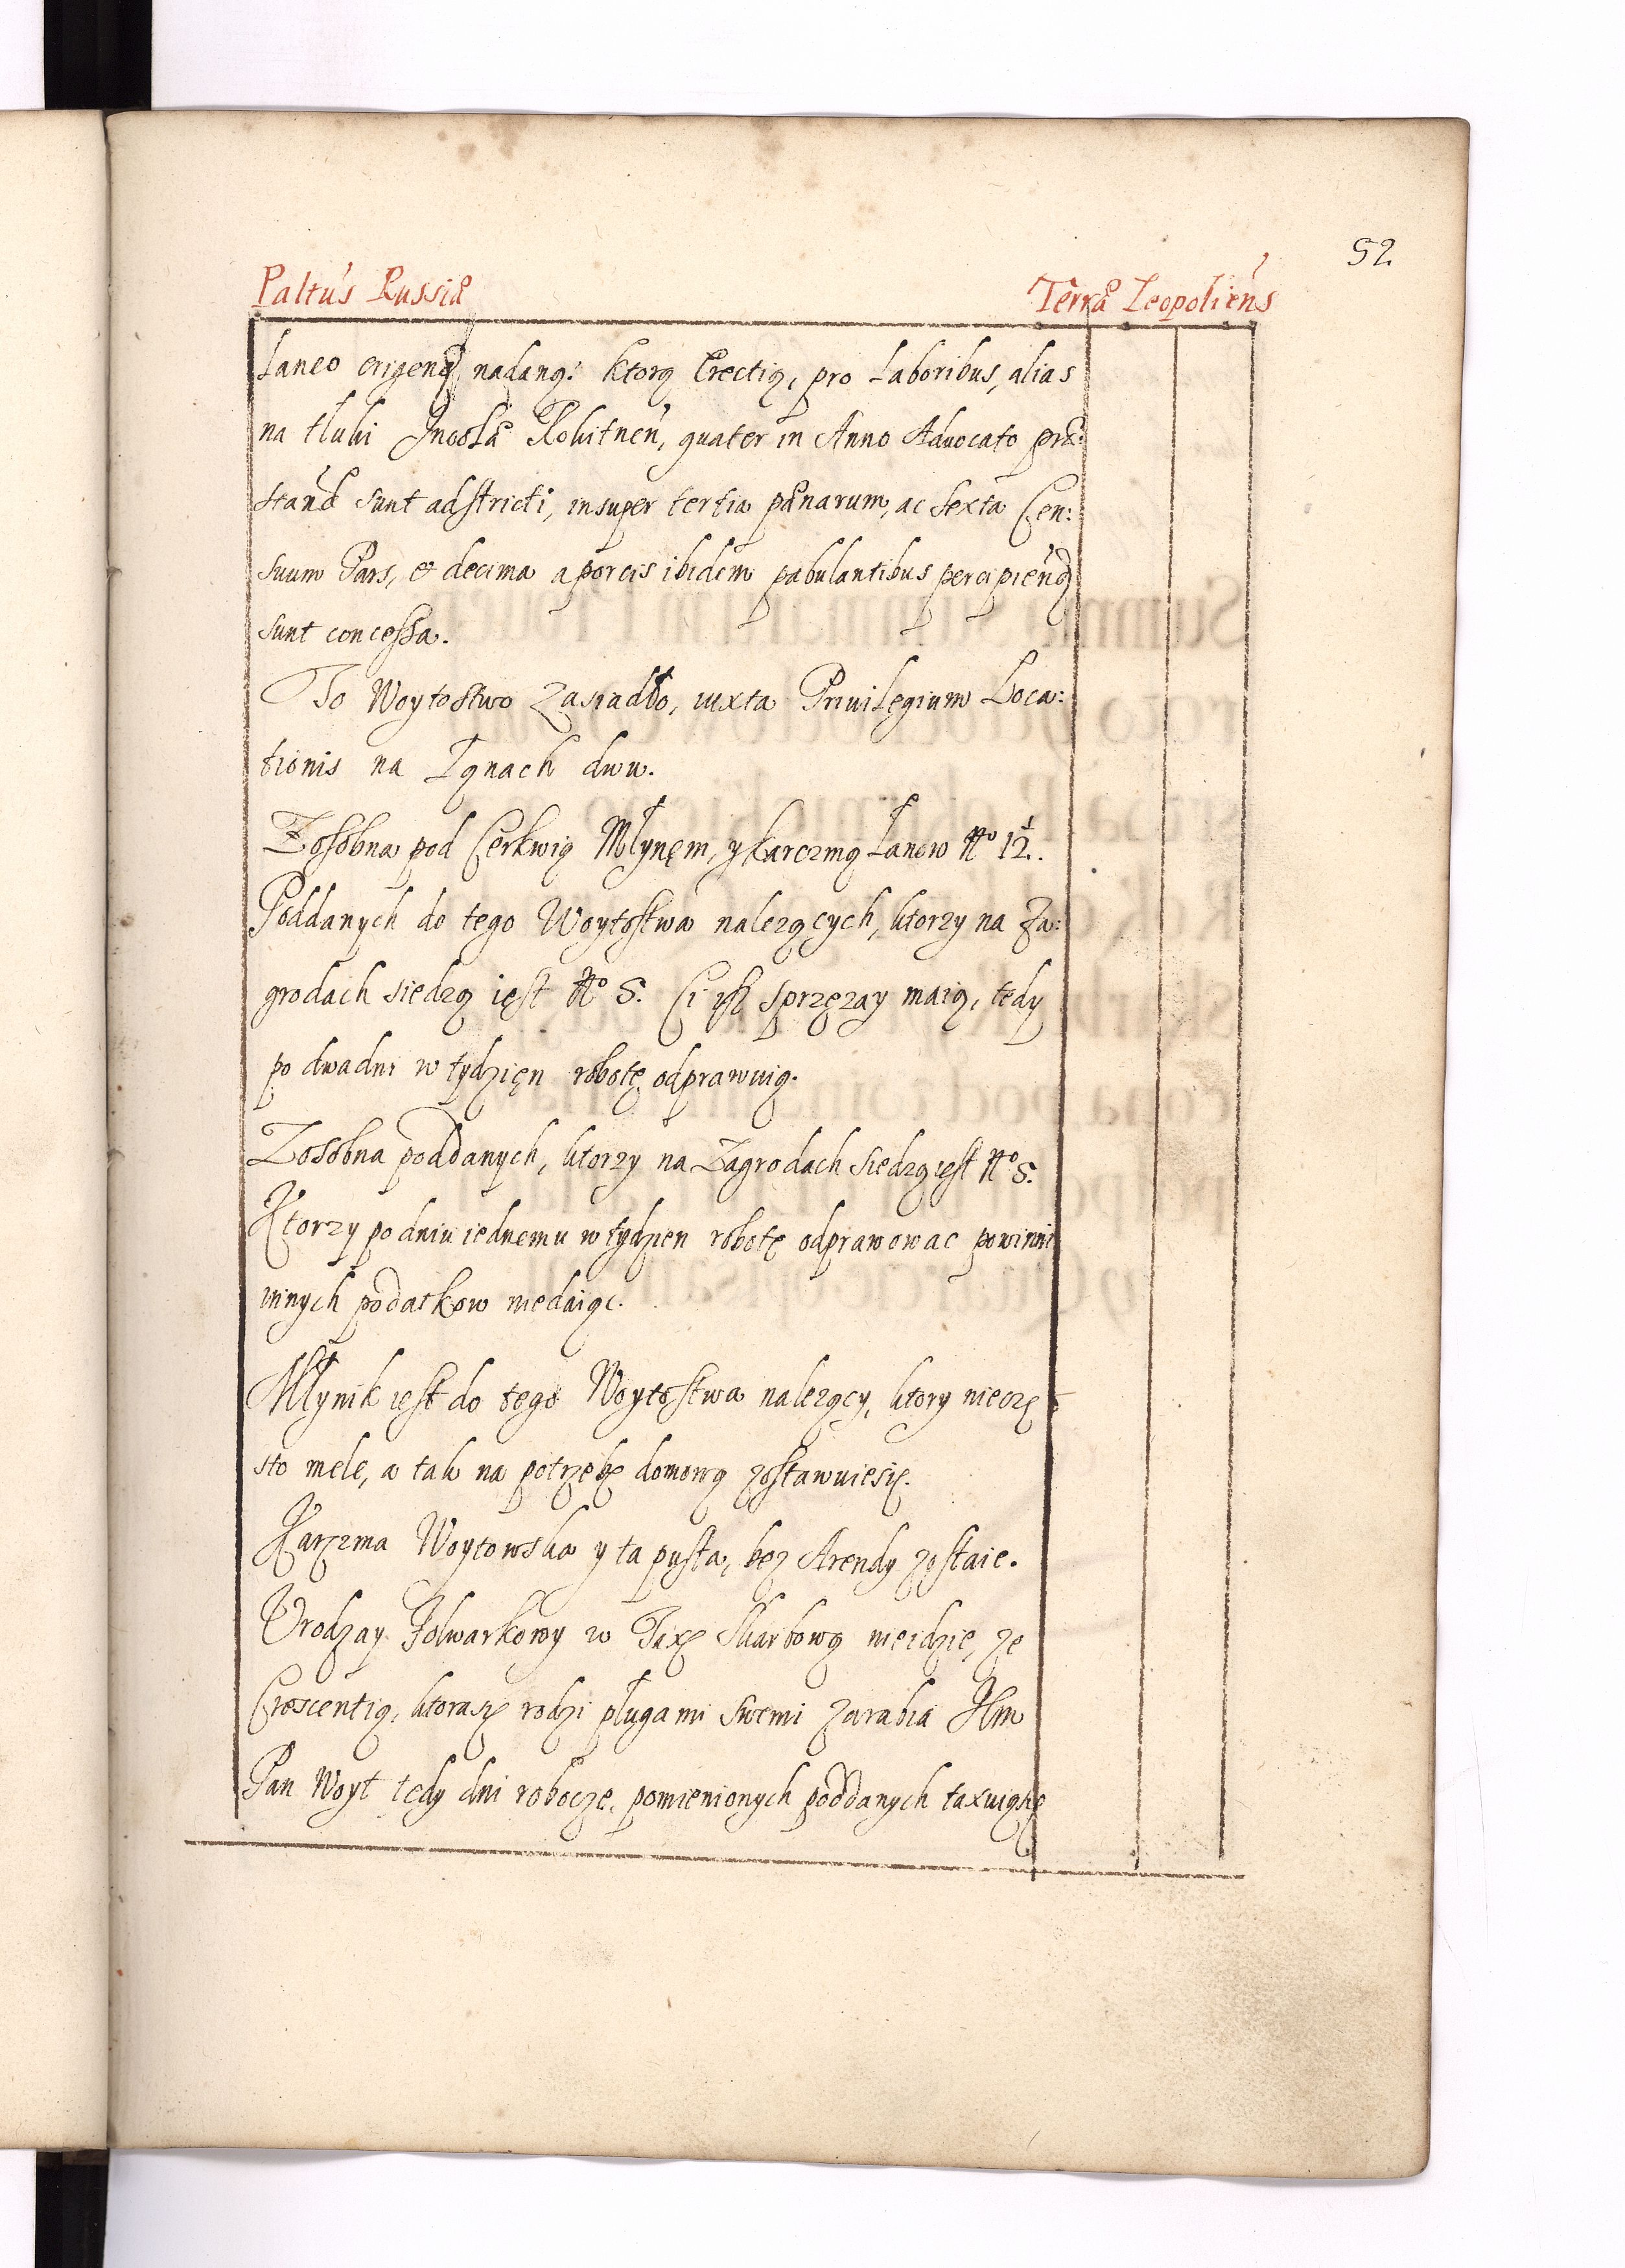 52
Paltús Russiæ Terræ Leopolień́s
Laneo erigend nadaną: ktorą Erectią, pro Laboribus, alias
na tluki Incolæ Rokitneń, quater in Anno Advocato præ:
stand sunt adstricti, insuper tertia pænarum, ac sexta Cen:
suum Pars, et decima a porcis ibidem pabulantibus percipiend
sunt concessa.
To Woytostwo Zasiadło, iuxta Privilegium Loca:
tionis na Łąnach dwu.
Zosobna pod Cerkwią Młynęm, y karczmą Łanow No 1½.
Poddanych do tego Woytostwa nalezących, ktorzy na Za:
grodach siedzą iest No 5. Ci isz sprzęzay maią, tedy
po dwa dni w tydzięn robotę odprawuią.
Zosobna poddanych, ktorzy na Zagrodach siedzą iest No 5.
Ktorzy po dniu iednemu w tydzien robotę odprawowac powinni
innych podatkow niedaiąc.
Młynik iest do tego Woytostwa nalezący, ktory nieczę:
sto mele, a tak na potrzebę domową zostawuiesię.
Karczma Woytowska y ta pusta, bez Arendy zostaie.
Urodzay Folwarkowy w Taxę Skarbową nieidzie, ze
Crescentią, ktorasię rodzi pługami swemi zarabia Jłm
Pan Woyt tedy dni robocze, pomienionych poddanych taxuiąsię